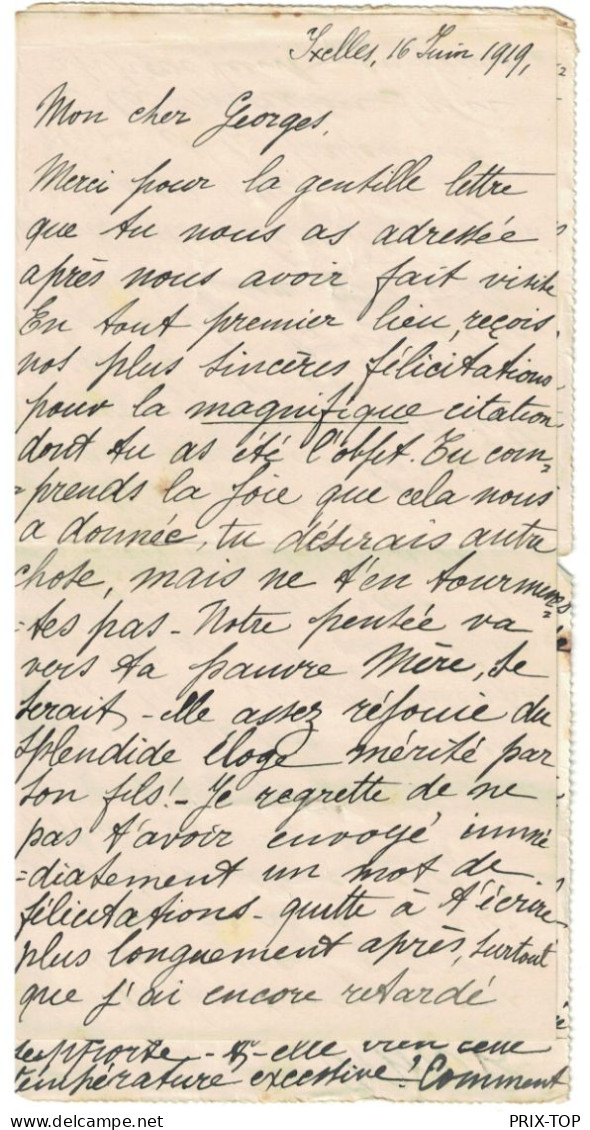 Ixelles, 16 Juin 1919,
Mon cher Georges,
Merci pour la gentille lettre
que tu nous as adressée
après nous avoir fait visite
En tout premier lieu, reçois
nos plus sincères félicitations
pour la magnifique citation
dont tu as été l'objet. Tu com=
=prends la joie que cela nous
a donnée, tu désirais autre
chose, mais ne t'en tourmen=
=tes pas - Notre pensée va
vers ta pauvre Mère, se
serait-elle assez réjouie du
splendide éloge mérité par
son fils! - Je regrette de ne
pas t'avoir envoyé immé
=diatement un mot de
félicitations - quitte à t'écrire
plus longuement après, surtout
que j'ai encore retardé
supporte-t-elle bien cette
température excessive! Comment
PRIX-TOP